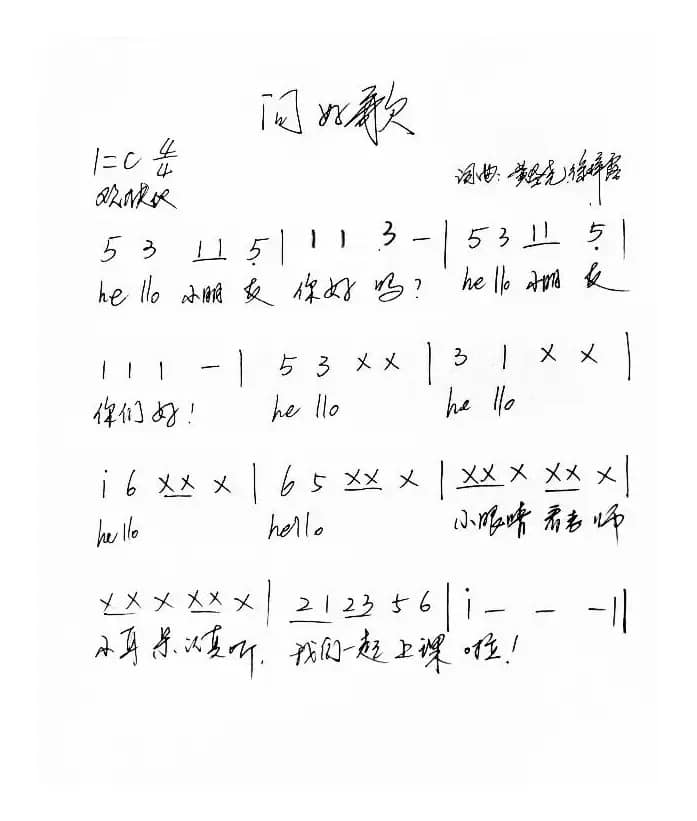 问好歌
1=C 4/4
欢快地
词曲:
5 3 1 1 5̣ | 1 1 3 - | 5 3 1 1 5̣ |
hello 小朋友 你好吗? hello 小朋友
1 1 1 - | 5 3 x x | 3 1 x x |
你们好! hello hello
i 6 xx x | 6 5 xx x | xx x xx x |
hello hello 小眼睛 看老师
xx x xx x | 2 1 2 3 5 6 | i - - - ‖
小耳朵认真听, 我们一起上课啦!